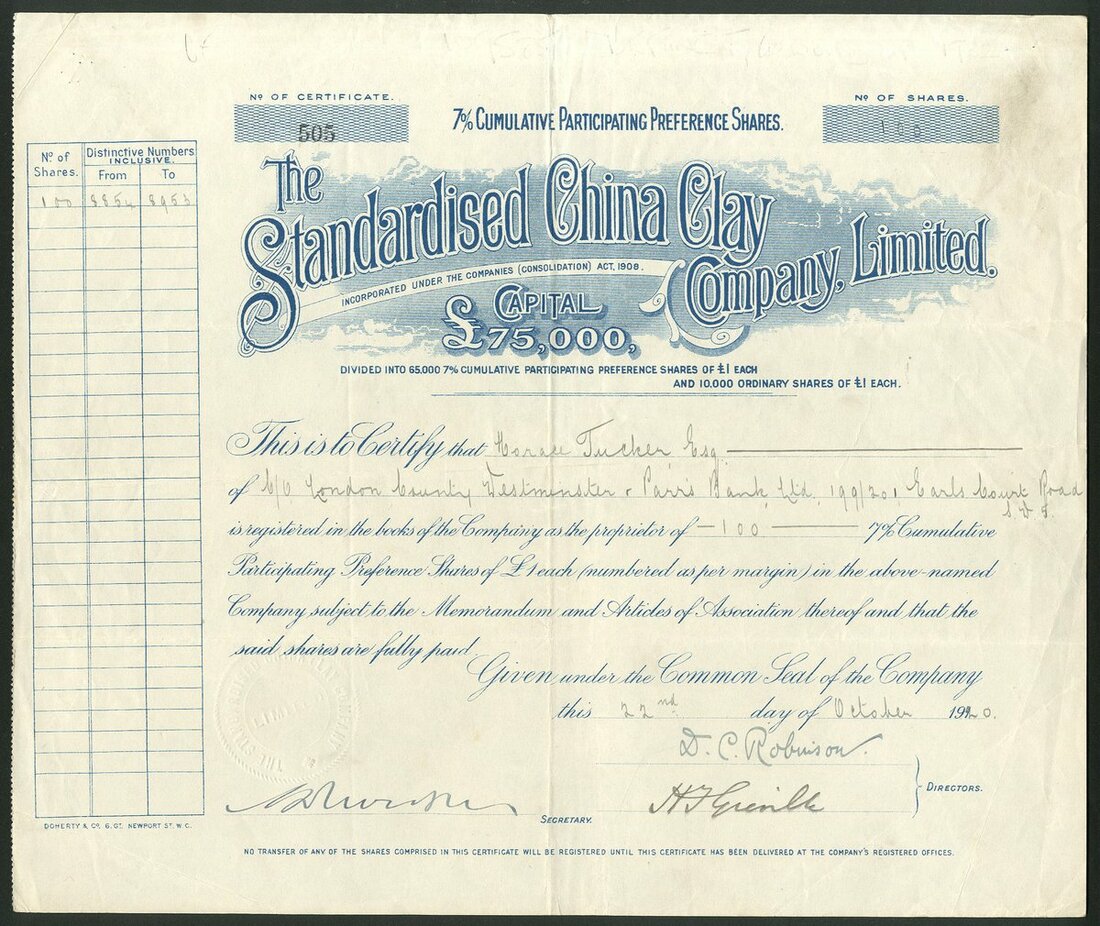 Nº OF CERTIFICATE.
505
7% CUMULATIVE PARTICIPATING PREFERENCE SHARES.
Nº OF SHARES.
100
Nº of Shares.
Distinctive Numbers INCLUSIVE.
From To
100 8854 8953
The
Standardised China Clay
Company, Limited.
INCORPORATED UNDER THE COMPANIES (CONSOLIDATION) ACT, 1908.
CAPITAL
£75,000,
DIVIDED INTO 65,000 7% CUMULATIVE PARTICIPATING PREFERENCE SHARES OF £1 EACH
AND 10,000 ORDINARY SHARES OF £1 EACH.
This is to Certify that Horace Tucker Esq.
of c/o London County Westminster & Parr's Bank Ltd. 199/201 Earls Court Road
S.W.5.
is registered in the books of the Company as the proprietor of —100— 7% Cumulative
Participating Preference Shares of £1 each (numbered as per margin) in the above-named
Company subject to the Memorandum and Articles of Association thereof and that the
said shares are fully paid.
Given under the Common Seal of the Company
this 22nd day of October 1920.
D. C. Robinson.
H F Greville
DIRECTORS.
SECRETARY.
DOHERTY & Cº. 6, Gᵗ. NEWPORT Sᵗ. W.C.
NO TRANSFER OF ANY OF THE SHARES COMPRISED IN THIS CERTIFICATE WILL BE REGISTERED UNTIL THIS CERTIFICATE HAS BEEN DELIVERED AT THE COMPANY'S REGISTERED OFFICES.